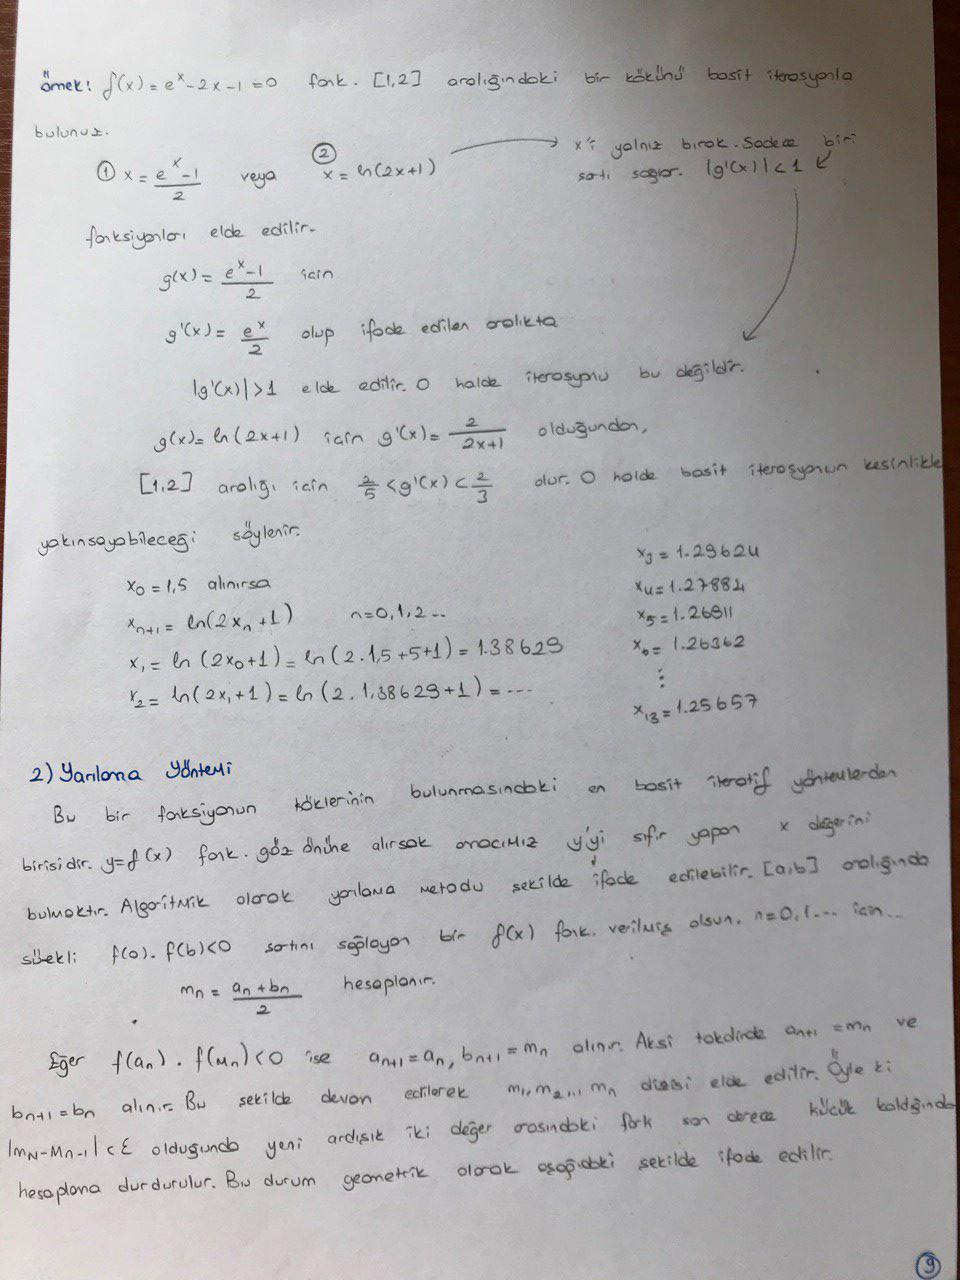 Örnek: f(x) = e^x - 2x - 1 = 0 fonk. [1,2] aralığındaki bir kökünü basit iterasyonla
bulunuz.
① x = (e^x - 1)/2 veya ② x = ln(2x+1) → x'i yalnız bırak. Sadece biri
şartı sağlar. |g'(x)| < 1
fonksiyonları elde edilir.
g(x) = (e^x - 1)/2 için
g'(x) = e^x/2 olup ifade edilen aralıkta
|g'(x)| > 1 elde edilir. O halde iterasyonu bu değildir.
g(x) = ln(2x+1) için g'(x) = 2/(2x+1) olduğundan,
[1,2] aralığı için 2/5 < g'(x) < 2/3 olur. O halde basit iterasyonun kesinlikle
yakınsayabileceği söylenir.
x₀ = 1,5 alınırsa
xₙ₊₁ = ln(2xₙ+1) n=0,1,2...
x₁ = ln(2x₀+1) = ln(2.1,5+5+1) = 1.38629
x₂ = ln(2x₁+1) = ln(2.1,38629+1) = ....
x₃ = 1.29624
x₄ = 1.27884
x₅ = 1.26911
x₆ = 1.26362
⋮
x₁₃ = 1.25657
2) Yarılama Yöntemi
Bu bir fonksiyonun köklerinin bulunmasındaki en basit iteratif yöntemlerden
birisidir. y=f(x) fonk. göz önüne alırsak amacımız y'yi sıfır yapan x değerini
bulmaktır. Algoritmik olarak yarılama metodu şekilde ifade edilebilir. [a,b] aralığında
sürekli f(a).f(b)<0 şartını sağlayan bir f(x) fonk. verilmiş olsun. n=0,1... için...
mₙ = (aₙ+bₙ)/2 hesaplanır.
Eğer f(aₙ).f(mₙ)<0 ise aₙ₊₁=aₙ, bₙ₊₁=mₙ alınır. Aksi takdirde aₙ₊₁=mₙ ve
bₙ₊₁=bₙ alınır. Bu şekilde devam edilerek m₁,m₂...mₙ dizisi elde edilir. Öyle ki
|m_N-m_N-1|<ε olduğunda yeni ardışık iki değer arasındaki fark son derece küçük kaldığında
hesaplama durdurulur. Bu durum geometrik olarak aşağıdaki şekilde ifade edilir.
9